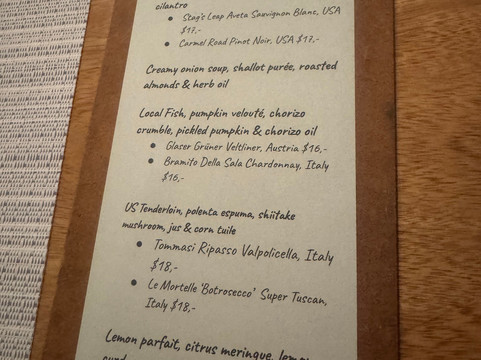 cilantro
• Stag's Leap Aveta Sauvignon Blanc, USA
$17,-
• Carmel Road Pinot Noir, USA $17,-
Creamy onion soup, shallot purée, roasted
almonds & herb oil
Local Fish, pumpkin velouté, chorizo
crumble, pickled pumpkin & chorizo oil
• Glaser Grüner Veltliner, Austria $16,-
• Bramito Della Sala Chardonnay, Italy
$16,-
US Tenderloin, polenta espuma, shiitake
mushroom, jus & corn tuile
• Tommasi Ripasso Valpolicella, Italy
$18,-
• Le Mortelle 'Botrosecco' Super Tuscan,
Italy $18,-
Lemon parfait, citrus meringue, lemon